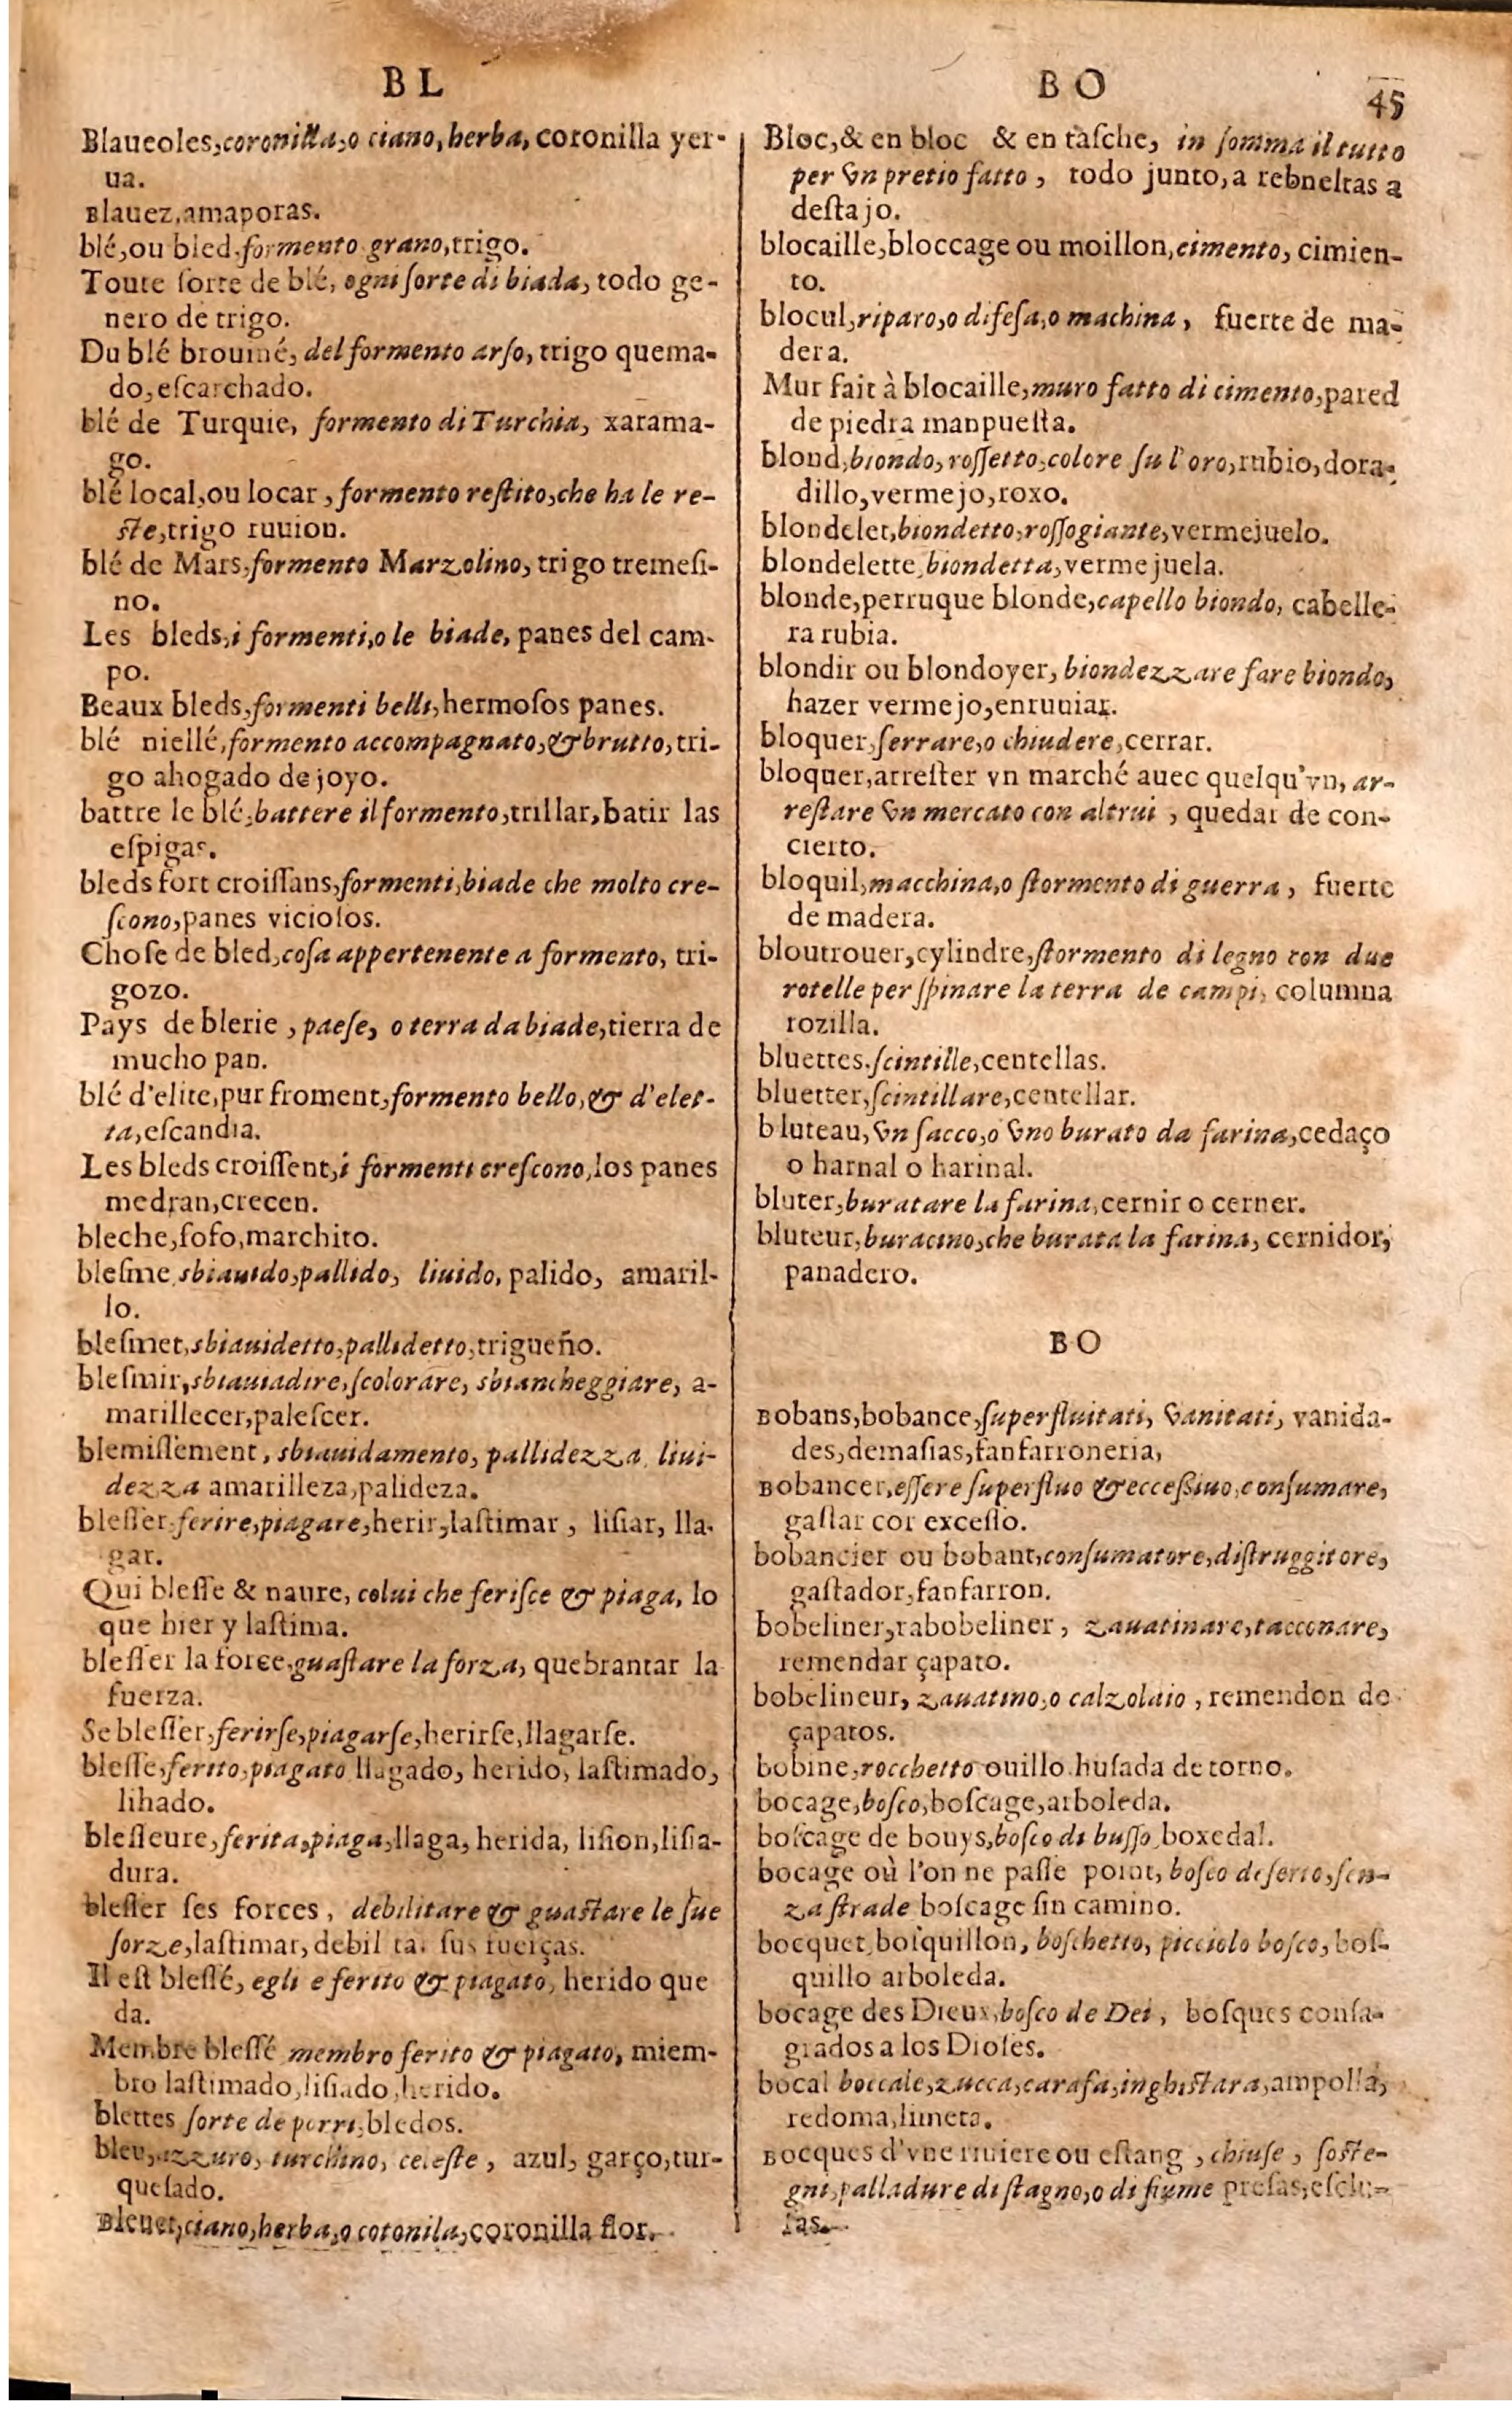 BL
Blaueoles,coronilla,o ciano,herba, coronilla yer-
ua.
Blauez,amaporas.
blé,ou bled,formento grano,trigo.
Toute ſorte de blé, ogni ſorte di biada, todo ge-
nero de trigo.
Du blé brouiné, del formento arſo, trigo quema-
do,eſcarchado.
blé de Turquie, formento di Turchia, xarama-
go.
blé local,ou locar, formento reſtito,che ha le re-
ſte,trigo ruuion.
blé de Mars,formento Marzolino, trigo tremeſi-
no.
Les bleds,i formenti,o le biade, panes del cam-
po.
Beaux bleds,formenti belli,hermoſos panes.
blé niellé,formento accompagnato,& brutto, tri-
go ahogado de joyo.
battre le blé,battere il formento,trillar,batir las
eſpigas.
bleds fort croiſſans,formenti,biade che molto cre-
ſcono,panes vicioſos.
Choſe de bled,coſa appertenente a formento, tri-
gozo.
Pays de blerie, paeſe, o terra da biade,tierra de
mucho pan.
blé d'elite,pur froment,formento bello,& d'elet-
ta,eſcandia.
Les bleds croiſſent,i formenti creſcono,los panes
medran,crecen.
bleche,fofo,marchito.
bleſme sbiauido,pallido, liuido, palido, amaril-
lo.
bleſmet,sbiauidetto,pallidetto,trigueño.
bleſmir,sbiauiadire,ſcolorare, sbiancheggiare, a-
marillecer,paleſcer.
blemiſſement, sbiauidamento, pallidezza, liui-
dezza amarilleza,palideza.
bleſſer,ferire,piagare,herir,laſtimar, liſiar, lla-
gar.
Qui bleſſe & naure, colui che feriſce & piaga, lo
que hier y laſtima.
bleſſer la force,guaſtare la forza, quebrantar la
fuerza.
Se bleſſer,ferirſe,piagarſe,herirſe,llagarſe.
bleſſe,ferito,piagato llagado, herido, laſtimado,
liſiado.
bleſſeure,ferita,piaga,llaga, herida, liſion,liſia-
dura.
bleſſer ſes forces, debilitare & guaſtare le ſue
forze,laſtimar,debil tar ſus fuerças.
Il eſt bleſſé, egli e ferito & piagato, herido que
da.
Membre bleſſé membro ferito & piagato, miem-
bro laſtimado,liſiado,herido.
blettes ſorte de porri,bledos.
bleu,azzuro, turchino, celeſte, azul, garço,tur-
queſado.
Bleuet,ciano,herba,o cotonila,coronilla flor.
BO
45
Bloc,& en bloc & en taſche, in ſomma il tutto
per vn pretio fatto, todo junto,a rebneltas a
deſtajo.
blocaille,bloccage ou moillon,cimento, cimien-
to.
blocul,riparo,o difeſa,o machina, fuerte de ma-
dera.
Mur fait à blocaille,muro fatto di cimento,pared
de piedra manpueſta.
blond,biondo,roſſetto,colore ſu l'oro,rubio,dora-
dillo,vermejo,roxo.
blondelet,biondetto,roſſogiante,vermejuelo.
blondelette,biondetta,vermejuela.
blonde,perruque blonde,capello biondo, cabelle-
ra rubia.
blondir ou blondoyer, biondezzare fare biondo,
hazer vermejo,enruuiar.
bloquer,ſerrare,o chiudere,cerrar.
bloquer,arreſter vn marché auec quelqu'vn, ar-
reſtare vn mercato con altrui, quedar de con-
cierto.
bloquil,macchina,o ſtormento di guerra, fuerte
de madera.
bloutrouer,cylindre,ſtormento di legno con due
rotelle per ſpinare la terra de campi, columna
rozilla.
bluettes.ſcintille,centellas.
bluetter,ſcintillare,centellar.
bluteau,vn ſacco,o vno burato da farina,cedaço
o harnal o harinal.
bluter,buratare la farina,cernir o cerner.
bluteur,buracino,che burata la farina, cernidor,
panadero.
BO
Bobans,bobance,ſuperfluitati, vanitati, vanida-
des,demaſias,fanfarroneria,
Bobancer,eſſere ſuperfluo & ecceſſiuo,conſumare,
gaſtar cor exceſſo.
bobancier ou bobant,conſumatore,diſtruggitore,
gaſtador,fanfarron.
bobeliner,rabobeliner, zauatinare,tacconare,
remendar çapato.
bobelineur, zauatino,o calzolaio, remendon de
çapatos.
bobine,rocchetto ouillo huſada de torno.
bocage,boſco,boſcage,arboleda.
boſcage de bouys,boſco di buſſo boxedal.
bocage où l'on ne paſſe point, boſco deſerto,ſen-
za ſtrade boſcage ſin camino.
bocquet,boſquillon, boſchetto, picciolo boſco, boſ-
quillo arboleda.
bocage des Dieux,boſco de Dei, boſques conſa-
grados a los Dioſes.
bocal boccale,zucca,carafa,inghiſtara,ampolla,
redoma,limeta.
Bocques d'vne riuiere ou eſtang, chiuſe, ſoſte-
gni,palladure di ſtagno,o di fiume preſas,eſclu-
ſas.